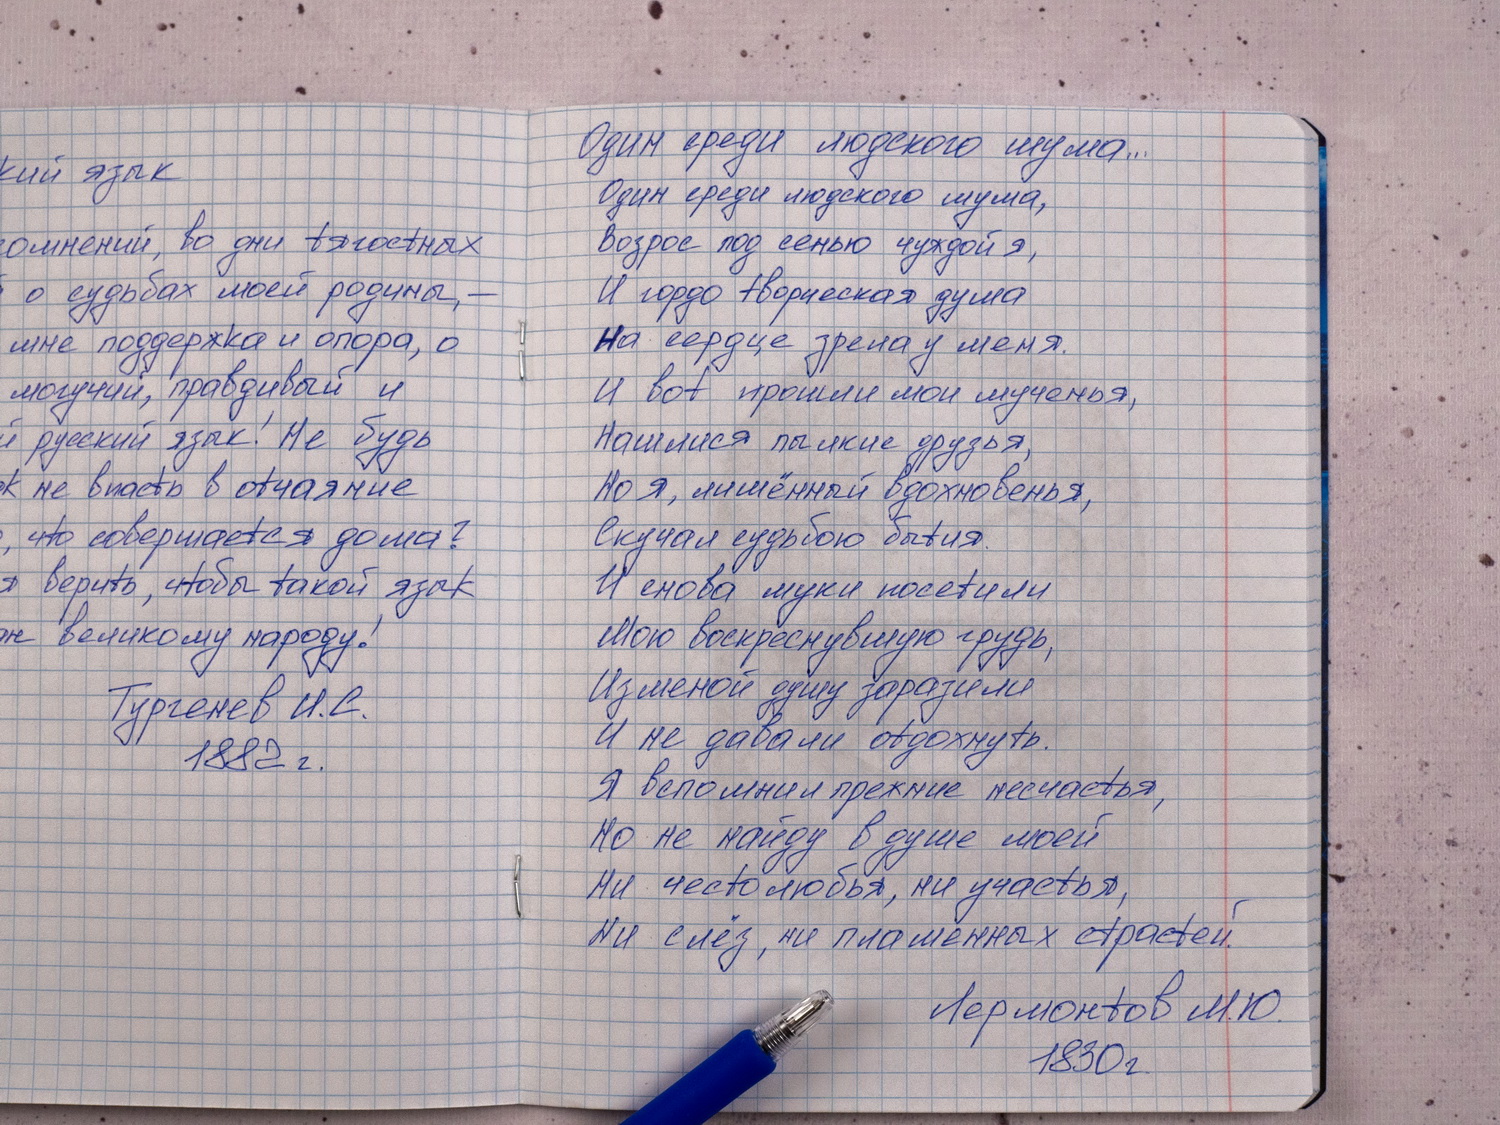 кий язык
сомнений, во дни тягостных
й о судьбах моей родины, —
мне поддержка и опора, о
могучий, правдивый и
й русский язык! Не будь
к не впасть в отчаяние
о, что совершается дома?
я верить, чтобы такой язык
ан великому народу!
Тургенев И.С.
1882 г.
Один среди людского шума...
Один среди людского шума,
Возрос под сенью чуждой я,
И гордо творческая дума
На сердце зрела у меня.
И вот прошли мои мученья,
Нашлися пылкие друзья,
Но я, лишённый вдохновенья,
Скучал судьбою бытия.
И снова муки посетили
Мою воскреснувшую грудь,
Изменой душу заразили
И не давали отдохнуть.
Я вспомнил прежние несчастья,
Но не найду в душе моей
Ни честолюбья, ни участья,
Ни слёз, ни пламенных страстей.
Лермонтов М.Ю.
1830г.